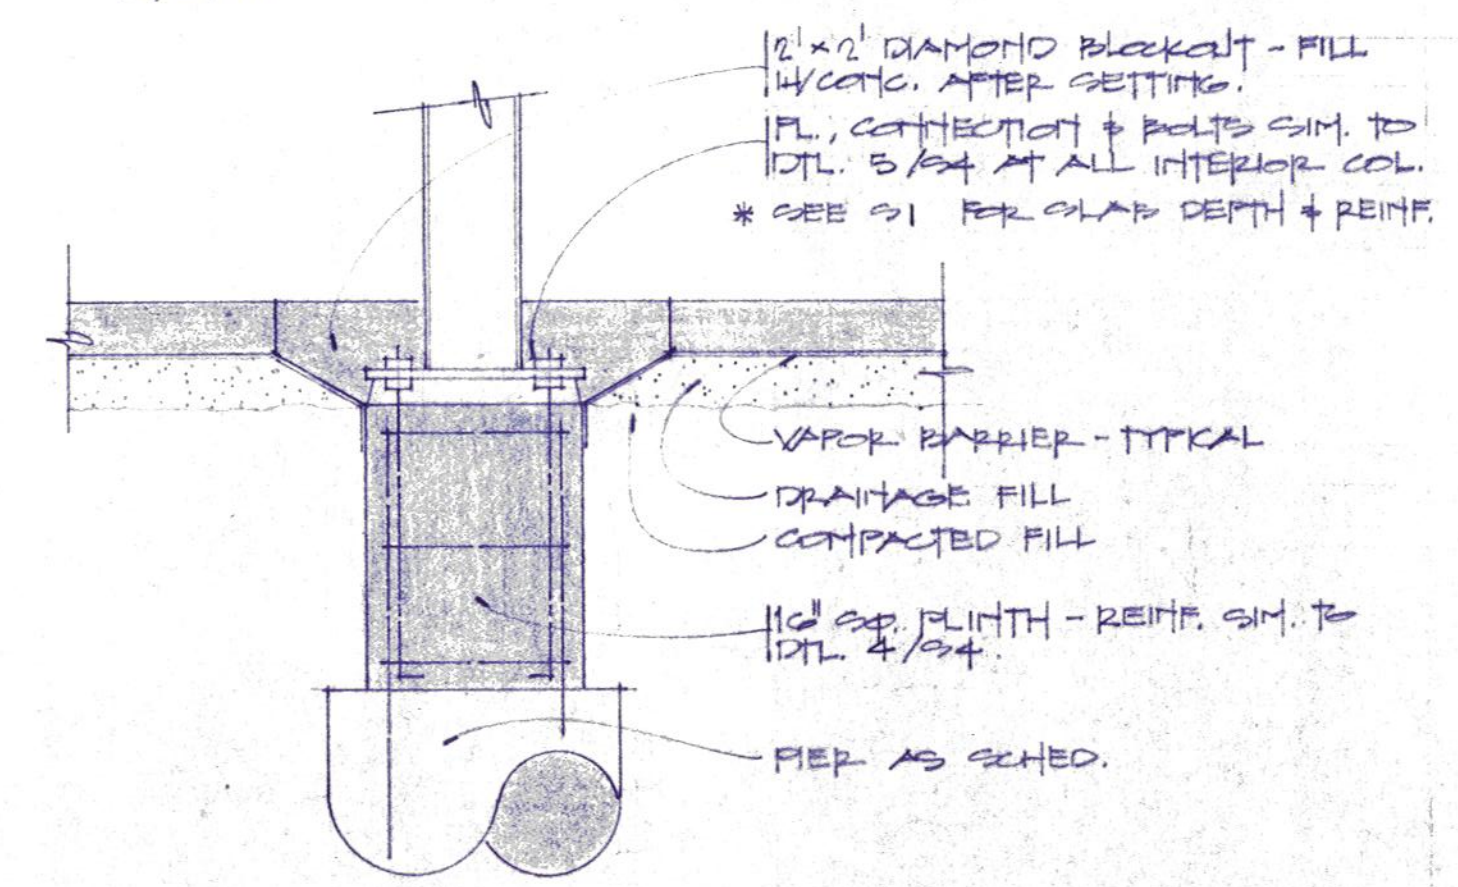 2' x 2' DIAMOND BLOCKOUT - FILL
W/CONC. AFTER SETTING.
PL., CONNECTION & BOLTS SIM. TO
DTL. 5/S4 AT ALL INTERIOR COL.
* SEE S1 FOR SLAB DEPTH & REINF.
VAPOR BARRIER - TYPICAL
DRAINAGE FILL
COMPACTED FILL
16" SQ. PLINTH - REINF. SIM. TO
DTL. 4/S4.
PIER AS SCHED.